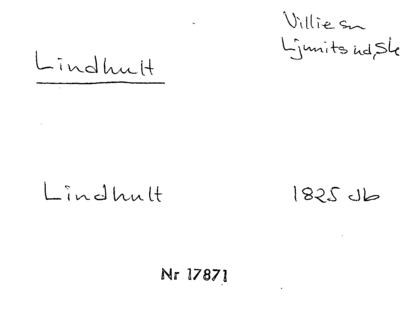 Villie sn
Ljunits hd, Sk
Lindhult
Lindhult 1825 Jb
Nr 17871